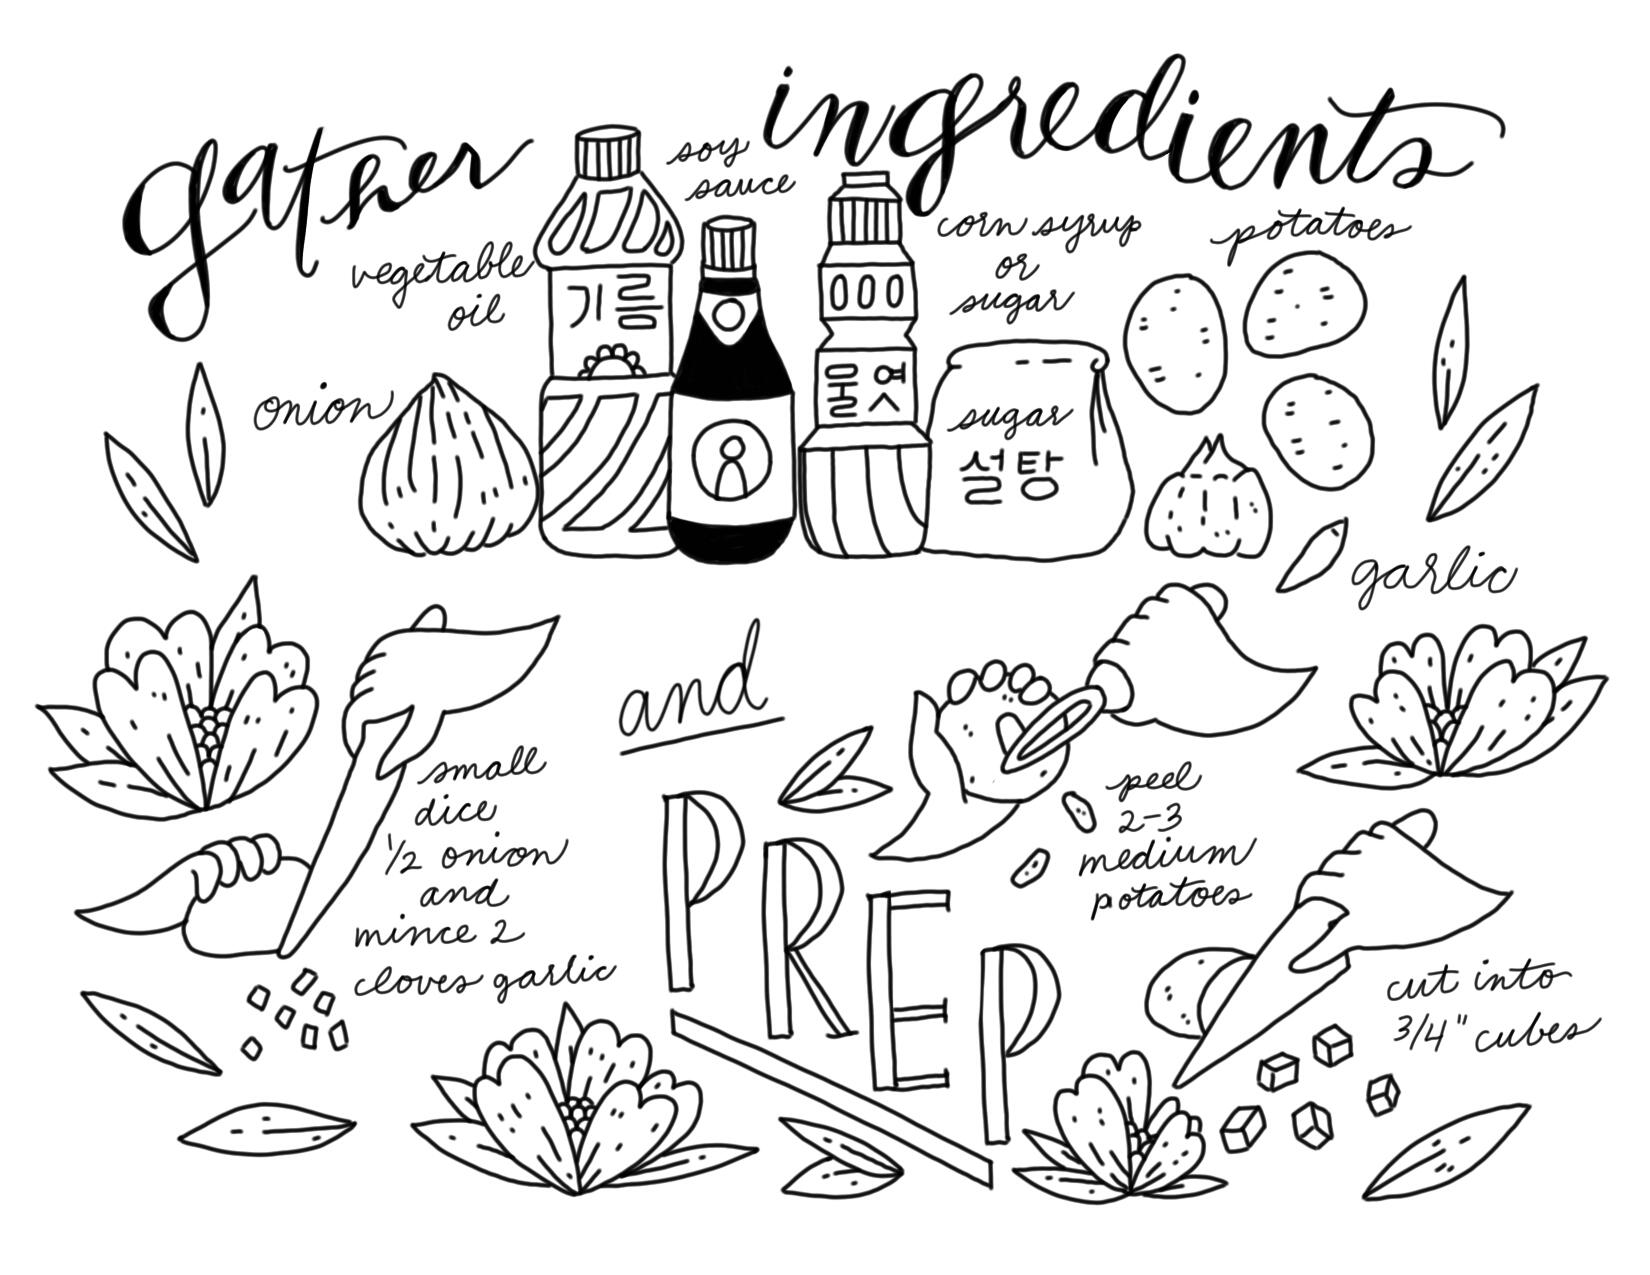 gather
ingredients
vegetable
oil
soy
sauce
corn syrup
or
sugar
potatoes
onion
기름
물엿
sugar
설탕
garlic
and
PREP
small
dice
1/2 onion
and
mince 2
cloves garlic
peel
2-3
medium
potatoes
cut into
3/4" cubes